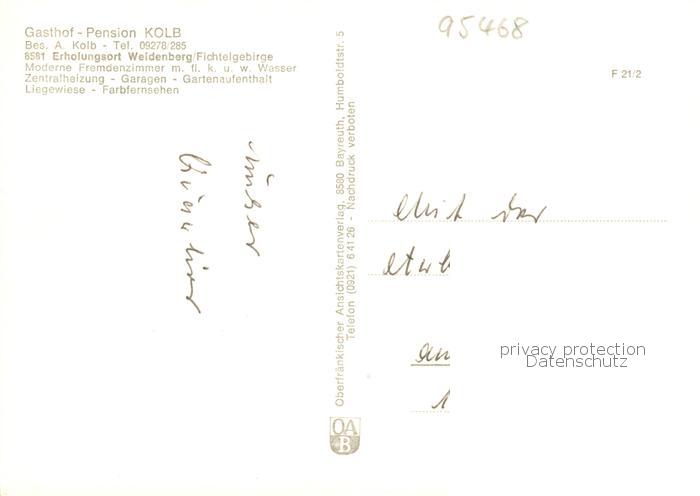 Gasthof - Pension KOLB
Bes. A. Kolb - Tel. 09278/285
8581 Erholungsort Weidenberg/Fichtelgebirge
Moderne Fremdenzimmer m. fl. k. u. w. Wasser
Zentralheizung - Garagen - Gartenaufenthalt
Liegewiese - Farbfernsehen
95468
F 21/2
Oberfränkischer Ansichtskartenverlag, 8580 Bayreuth, Humboldtstr. 5
Telefon (0921) 6 41 26 - Nachdruck verboten
an
1
privacy protection
Datenschutz
OA
B